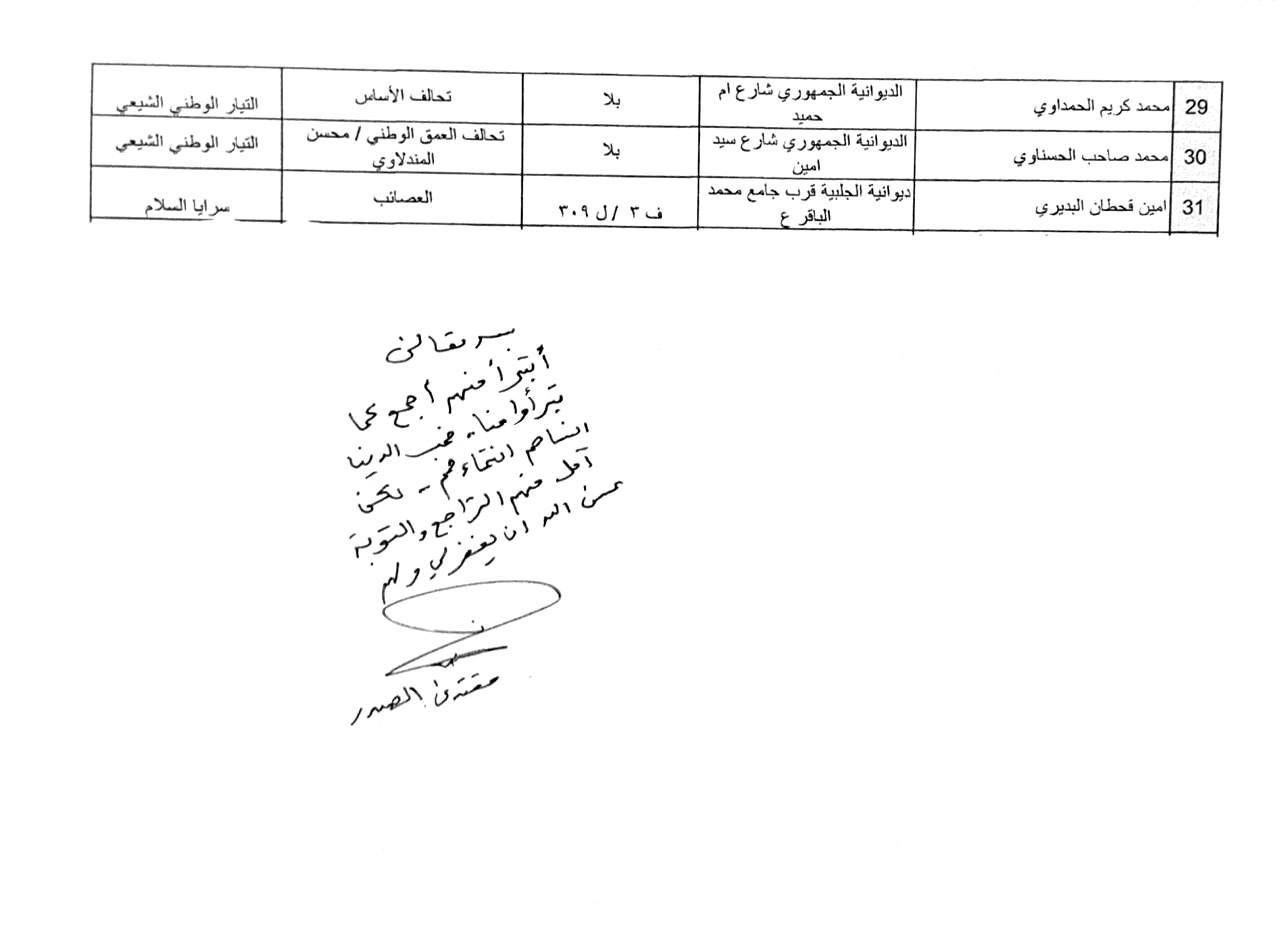 29 محمد كريم الحمداوي الديوانية الجمهوري شارع ام حميد بلا تحالف الأساس التيار الوطني الشيعي
30 محمد صاحب الحسناوي الديوانية الجمهوري شارع سيد امين بلا تحالف العمق الوطني / محسن المندلاوي التيار الوطني الشيعي
31 امين قحطان البديري ديوانية الجلبية قرب جامع محمد الباقر ع ف ٣ / ل ٣٠٩ العصائب سرايا السلام
بسمه تعالى
أتبرأ منهم أجمع كما
يتبرأوا منا.. فحب الدنيا
انساهم انتماءهم.. لكني
آمل منهم التراجع والتوبة
عسى الله ان يغفر لي ولهم
مقتدى الصدر